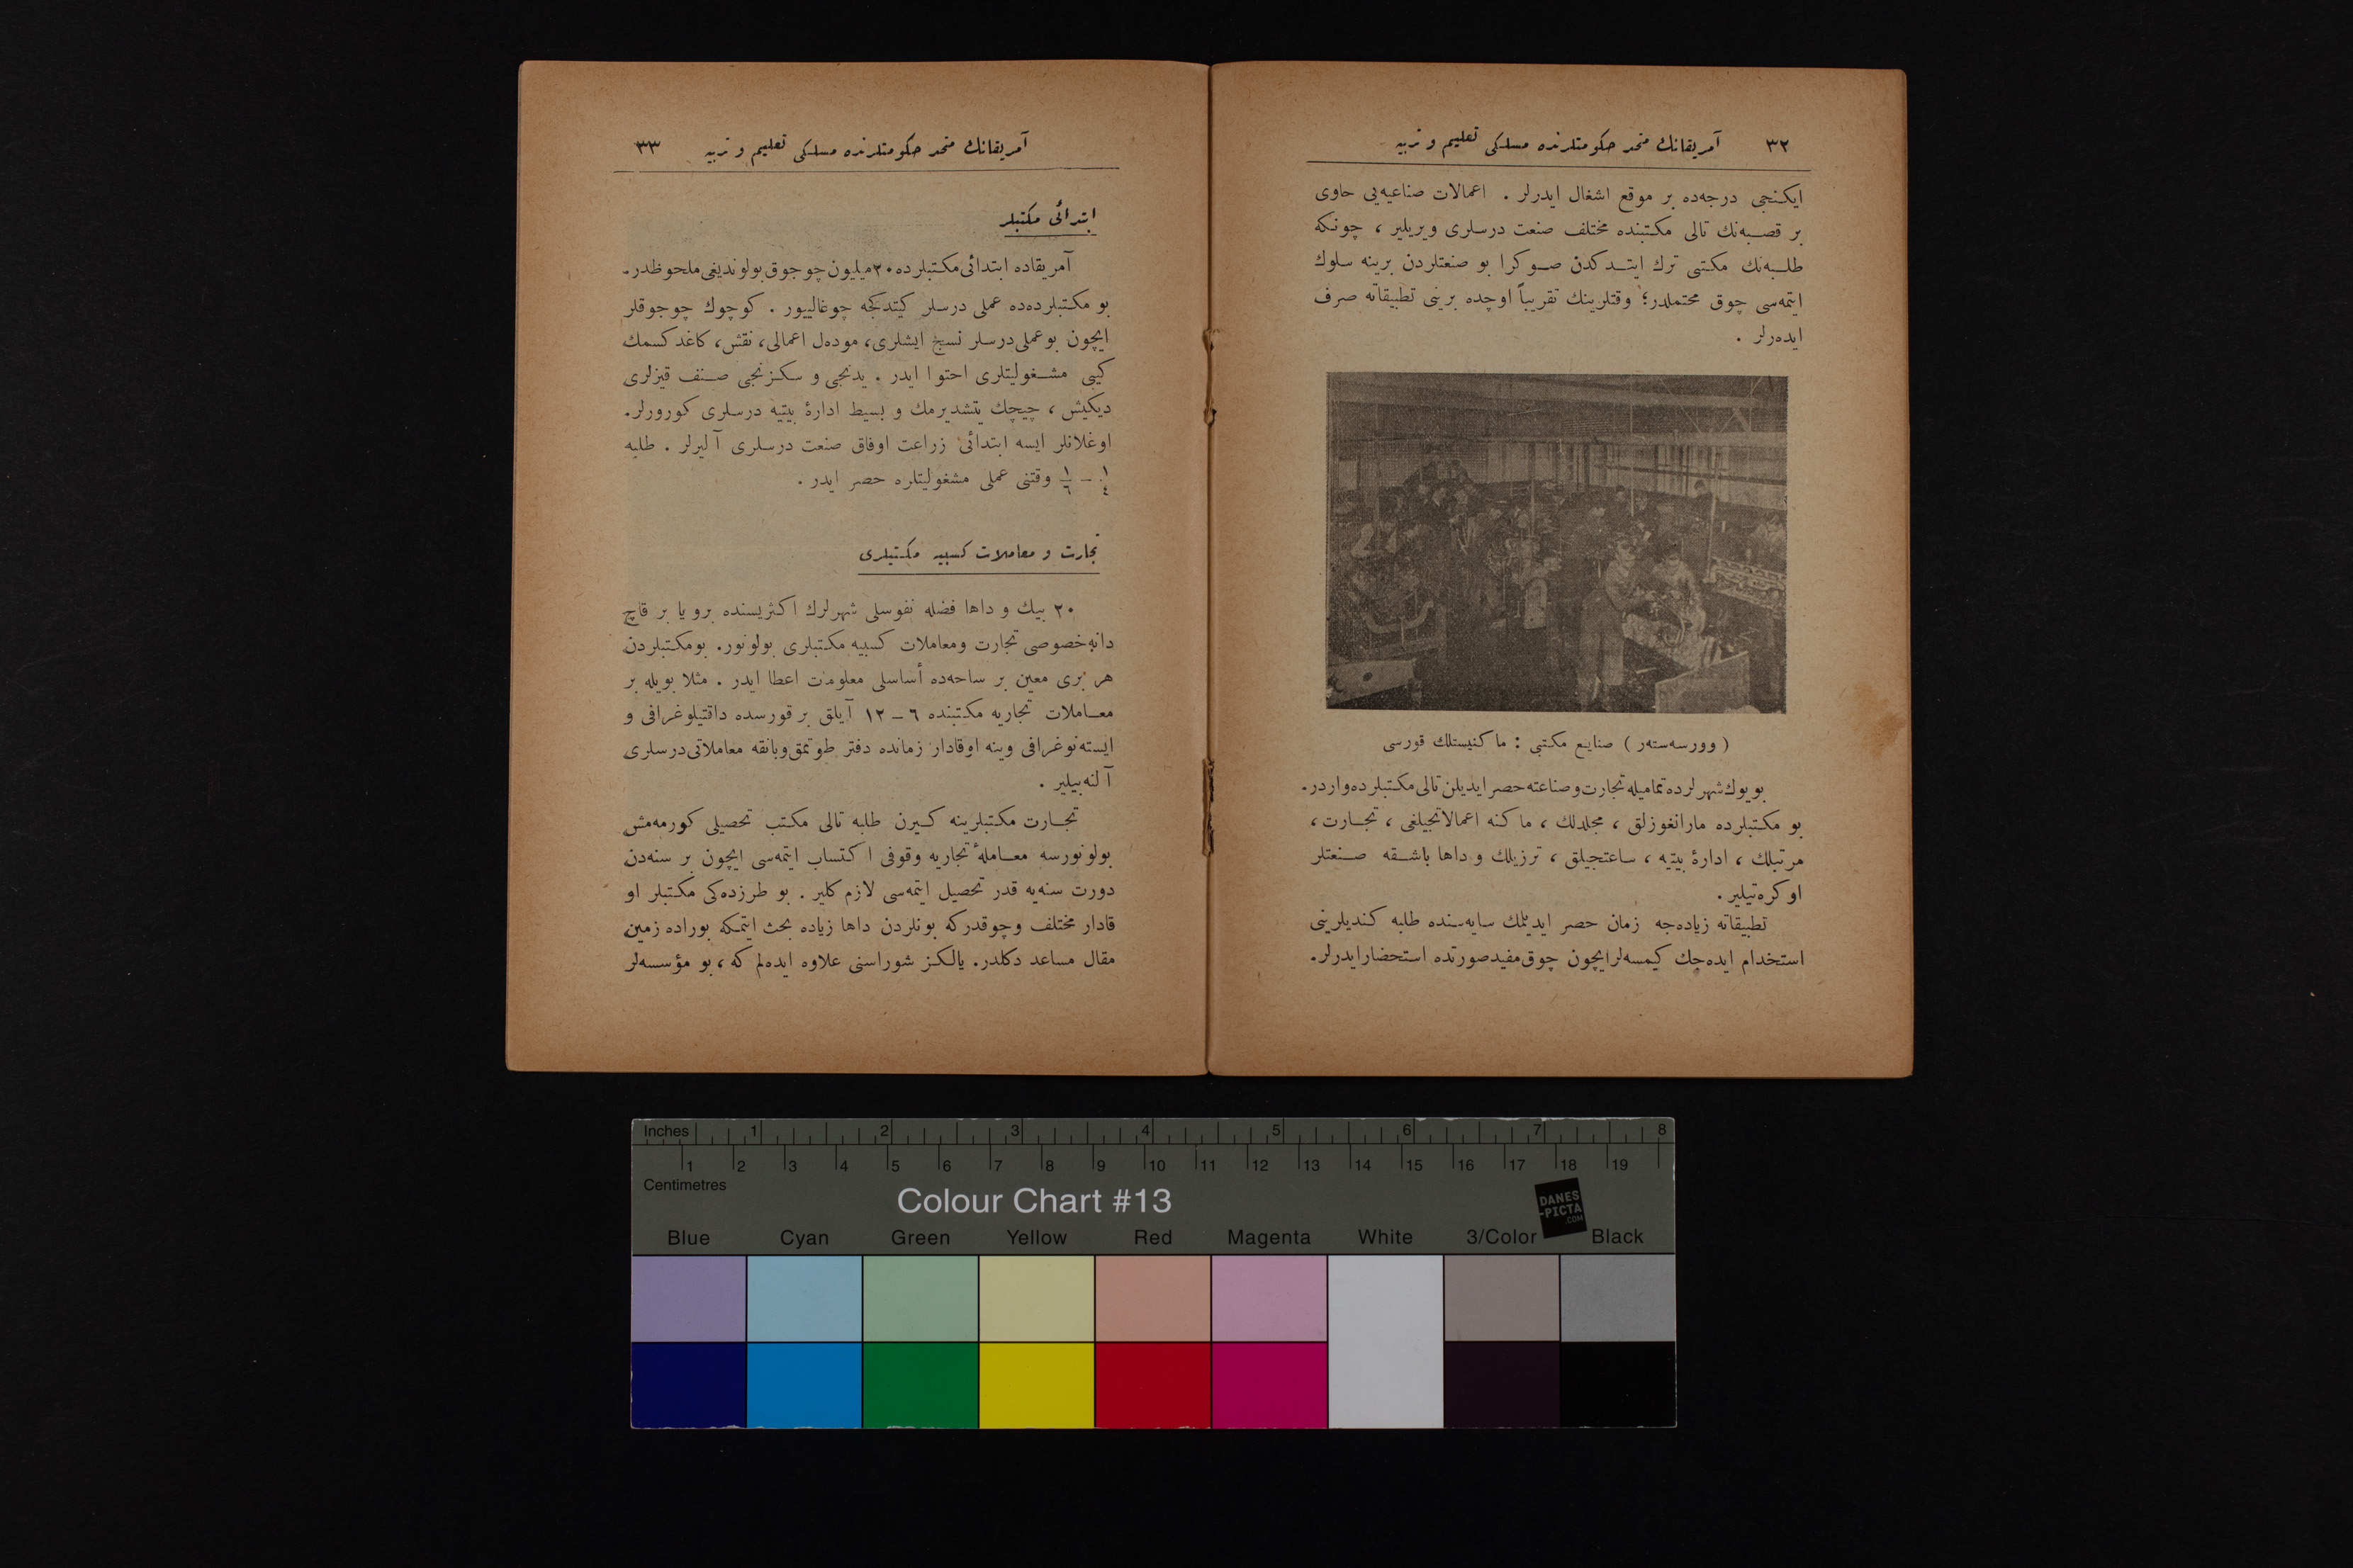 ٣٢ آمریقانك متحد حكومتلرنده مسلكی تعلیم و تربیه
ایكنجی درجه‌ده بر موقع اشغال ایدرلر . اعمالات صناعیه‌یی حاوی
بر قصبه‌نك تالی مكتبنده مختلف صنعت درسلری ویریلیر ، چونكه
طلبه‌نك مكتبی ترك ایتدكدن صوكرا بو صنعتلردن برینه سلوك
ایتمه‌سی چوق محتملدر؛ وقتلرینك تقریباً اوچده برینی تطبیقاته صرف
ایده‌رلر .
( وورسه‌ستەر ) صنایع مكتبی : ماكنیستلك قورسی
بویوك شهرلرده تمامیله تجارت و صناعته حصر ایدیلن تالی مكتبلرده واردر.
بو مكتبلرده مارانغوزلق ، مجلدلك ، ماكنه اعمالاتجیلغی ، تجارت ،
مرتبلك ، ادارهٔ بیتیه ، ساعتجیلق ، ترزیلك و داها باشقه صنعتلر
اوكره‌تیلیر .
تطبیقاته زیاده‌جه زمان حصر ایدیلمك سایه‌سنده طلبه كندیلرینی
استخدام ایده‌جك كیمسه‌لر ایچون چوق مفید صورتده استحضار ایدرلر.
آمریقانك متحد حكومتلرنده مسلكی تعلیم و تربیه ٣٣
ابتدائی مكتبلر
آمریقاده ابتدائی مكتبلرده ٢٠ میلیون چوجوق بولوندیغی ملحوظدر.
بو مكتبلرده‌ده عملی درسلر كیتدكجه چوغالییور . كوچوك چوجوقلر
ایچون بو عملی درسلر نسج ایشلری، موده‌ل اعمالی، نقش، كاغد كسمك
كیبی مشغولیتلری احتوا ایدر . یدنجی و سكزنجی صنف قیزلری
دیكیش ، چیچك یتشدیرمك و بسیط ادارهٔ بیتیه درسلری كورورلر.
اوغلانلر ایسه ابتدائی زراعت اوفاق صنعت درسلری آلیرلر . طلبه
١/٤ – ١/٦ وقتنی عملی مشغولیتلره حصر ایدر .
تجارت و معاملات كسبیه مكتبلری
٢٠ بیك و داها فضله نفوسلی شهرلرك اكثریسنده بر ویا بر قاچ
دانه خصوصی تجارت ومعاملات كسبیه مكتبلری بولونور. بو مكتبلردن
هر بری معین بر ساحه‌ده أساسلی معلومات اعطا ایدر . مثلا بویله بر
معاملات تجاریه مكتبنده ٦ – ١٢ آیلق بر قورسده داقتیلوغرافی و
ایسته‌نوغرافی وینه اوقادار زمانده دفتر طوتمق وبانقه معاملاتی درسلری
آلنه‌بیلیر .
تجارت مكتبلرینه كیرن طلبه تالی مكتب تحصیلی كورمه‌مش
بولونورسه معاملهٔ تجاریه وقوفی اكتساب ایتمه‌سی ایچون بر سنه‌دن
دورت سنه‌یه قدر تحصیل ایتمه‌سی لازم كلیر . بو طرزده‌كی مكتبلر او
قادار مختلف وچوقدركه بونلردن داها زیاده بحث ایتمكه بوراده زمین
مقال مساعد دكلدر. یالكز شوراسنی علاوه ایده‌لم كه ، بو مؤسسه‌لر
Inches 1 2 3 4 5 6 7 8
1 2 3 4 5 6 7 8 9 10 11 12 13 14 15 16 17 18 19
Centimetres
Colour Chart #13
DANES
-PICTA
.COM
Blue Cyan Green Yellow Red Magenta White 3/Color Black